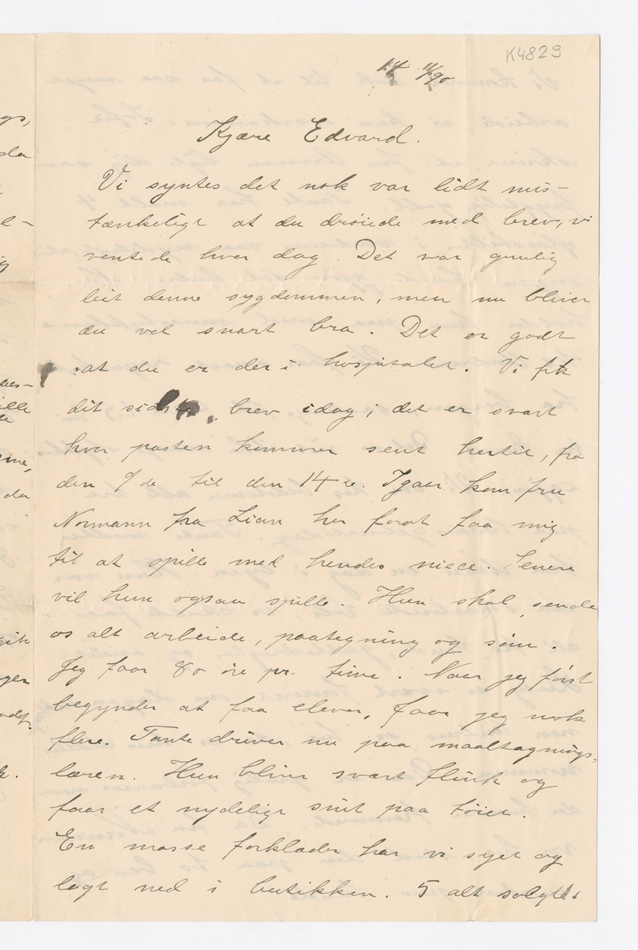 K4829
14 11/90
Kjære Edvard.
Vi syntes det nok var lidt mis-
tænkeligt at du drøiede med brev, vi
ventede hver dag. Det var gruelig
leit denne sygdommen, men nu bliver
du vel snart bra. Det er godt
at du er der i hospitalet. Vi fik
dit sidste brev idag; det er svart
hvor posten kommer sent hertil, fra
den 9de til den 14de. Igaar kom fru
Normann fra Lian her forat faa mig
til at spille med hendes niece. Senere
vil hun ogsaa spille. Hun skal sende
os alt arbeide, paategning og søm.
Jeg faar 80 øre pr. time. Naar jeg først
begynder at faa elever, faar jeg nok
flere. Tante driver nu paa maaltagnings-
læren. Hun bliver svært flink og
faar et nydeligt snit paa tøiet.
En masse forklæder har vi syet og
lagt ned i butikken. 5 alt solgt.
gs,
da
l-
ille
me,
da
gik
ger
ndt.
k.